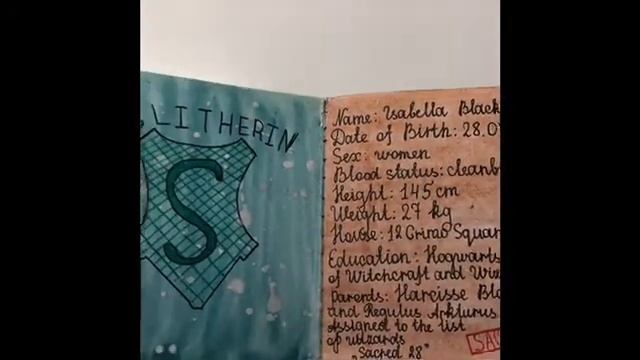 LITHERIN
S
Name: Isabella Black
Date of Birth: 28.0
Sex: women
Blood status: cleanb
Height: 145 cm
Weight: 27 kg
House: 12 Grimo Squar
Education: Hogwarts
of Witchcraft and Wiz
Parents: Harcisse Blo
and Regulus Arkturus
Assigned to the list
of wizards
„Sacred 28"